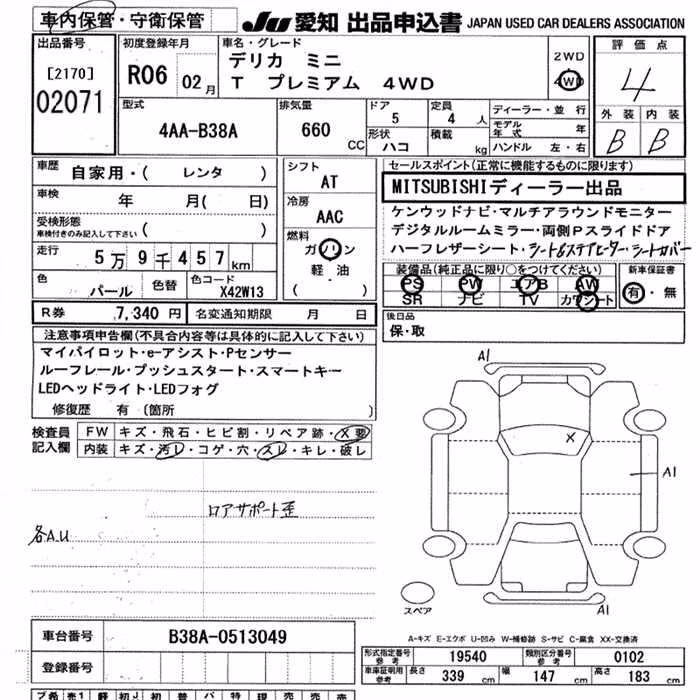 車内保管・守衛保管
JU 愛知 出品申込書 JAPAN USED CAR DEALERS ASSOCIATION
出品番号 初度登録年月 車名・グレード 評価点
[2170] R06 02月 デリカ ミニ 2WD
02071 T プレミアム 4WD 4WD 4
型式 排気量 ドア 定員 ディーラー・並行 外装 内装
4AA-B38A 660 CC 5 4人 モデル年式 年 B B
形状 積載 ハンドル 左・右
ハコ kg
車歴 自家用・( レンタ ) シフト セールスポイント(正常に機能するものに限ります)
AT MITSUBISHIディーラー出品
車検 年 月( 日) 冷房 ケンウッドナビ・マルチアラウンドモニター
受検形態 AAC デジタルルームミラー・両側Pスライドドア
車検付きのみ記入して下さい ( ) 燃料 ハーフレザーシート・シート&ステアヒーター・シートカバー
走行 5万9千457km ガソリン
軽・油
( )
装備品(純正品に限り○をつけてください) 新車保証書
色 パール 色替 色コード X42W13 PS PW エアB AW 有・無
SR ナビ TV カワシート
R券 7,340円 名変通知期限 月 日 後日品
保・取
注意事項申告欄(不具合内容等は具体的に記入して下さい)
マイパイロット・e-アシスト・Pセンサー
ルーフレール・プッシュスタート・スマートキー
LEDヘッドライト・LEDフォグ
修復歴 有(箇所 )
検査員記入欄 FW キズ・飛石・ヒビ割・リペア跡・X要
内装 キズ・汚レ・コゲ・穴・スレ・キレ・破レ
A1
X
A1
ロアサポート歪
各A.U
スペア
A1
A-キズ E-エクボ U-凹み W-補修跡 S-サビ C-腐食 XX-交換済
車台番号 B38A-0513049
登録番号
形式指定番号 参考 19540 類別区分番号 参考 0102
車庫証明用 参考 長さ 339 cm 幅 147 cm 高さ 183 cm